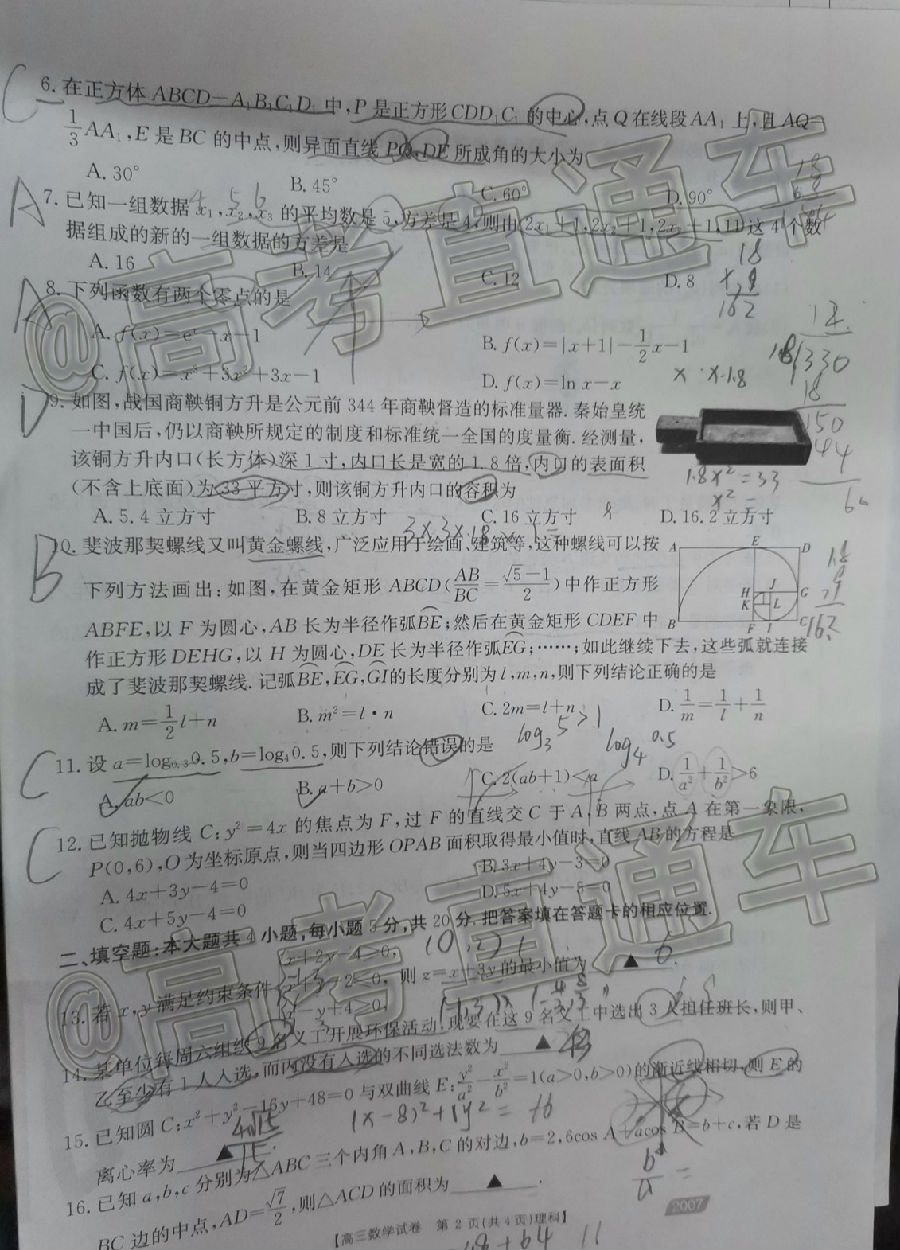 6. 在正方体 ABCD-A₁B₁C₁D₁ 中,P 是正方形 CDD₁C₁ 的中心,点 Q 在线段 AA₁ 上,且 AQ=
1/3 AA₁,E 是 BC 的中点,则异面直线 PQ,DE 所成角的大小为
A. 30° B. 45° C. 60° D. 90°
7. 已知一组数据 x₁,x₂,x₃ 的平均数是 5,方差是 4,则由 2x₁+1,2x₂+1,2x₃+1,11 这 4 个数
据组成的新的一组数据的方差是
A. 16 B. 14 C. 12 D. 8
8. 下列函数有两个零点的是
A. f(x)=eˣ-x-1 B. f(x)=|x+1|-1/2x-1
C. f(x)=x³+3x²+3x-1 D. f(x)=ln x-x
9. 如图,战国商鞅铜方升是公元前 344 年商鞅督造的标准量器. 秦始皇统
一中国后,仍以商鞅所规定的制度和标准统一全国的度量衡. 经测量,
该铜方升内口(长方体)深 1 寸,内口长是宽的 1.8 倍,内口的表面积
(不含上底面)为 33 平方寸,则该铜方升内口的容积为
A. 5.4 立方寸 B. 8 立方寸 C. 16 立方寸 D. 16.2 立方寸
10. 斐波那契螺线又叫黄金螺线,广泛应用于绘画、建筑等,这种螺线可以按
下列方法画出:如图,在黄金矩形 ABCD(AB/BC=(√5-1)/2)中作正方形
ABFE,以 F 为圆心,AB 长为半径作弧BE;然后在黄金矩形 CDEF 中
作正方形 DEHG,以 H 为圆心,DE 长为半径作弧EG;……;如此继续下去,这些弧就连接
成了斐波那契螺线. 记弧BE,EG,GI的长度分别为 l,m,n,则下列结论正确的是
A. m=1/2 l+n B. m²=l·n C. 2m=l+n D. 1/m=1/l+1/n
11. 设 a=log₀.₃0.5,b=log₄0.5,则下列结论错误的是
A. ab<0 B. a+b>0 C. 2(ab+1)<a D. 1/a²+1/b²>6
12. 已知抛物线 C:y²=4x 的焦点为 F,过 F 的直线交 C 于 A,B 两点,点 A 在第一象限,
P(0,6),O 为坐标原点,则当四边形 OPAB 面积取得最小值时,直线 AB 的方程是
A. 4x+3y-4=0 B. 3x+4y-3=0
C. 4x+5y-4=0
二、填空题:本大题共 4 小题,每小题 5 分,共 20 分. 把答案填在答题卡的相应位置.
13. 若 x,y 满足约束条件 则 z=x+3y 的最小值为 ▲
14. 某单位每周六组织 9 名义工开展环保活动,现要在这 9 名义工中选出 3 人担任班长,则甲、
乙至少有 1 人入选,而丙没有入选的不同选法数为 ▲
15. 已知圆 C:x²+y²-16y+48=0 与双曲线 E:y²/a²-x²/b²=1(a>0,b>0)的渐近线相切,则 E 的
离心率为 ▲
16. 已知 a,b,c 分别为△ABC 三个内角 A,B,C 的对边,b=2,6cos A+acos B=b+c,若 D 是
BC 边的中点,AD=√7/2,则△ACD 的面积为 ▲
【高三数学试卷 第 2 页(共 4 页)理科】
2007
@高考直通车
@高考直通车